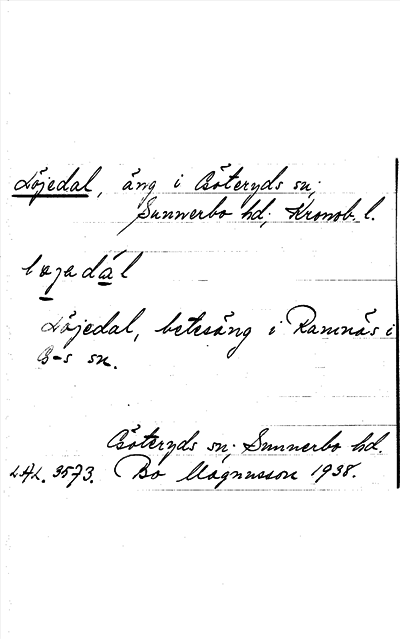 Löjedal, äng i Böteryds sn;
Sunnerbo hd; Kronob. l.
Löjedal, betesäng i Ramnäs i
B-s sn.
Böteryds sn; Sunnerbo hd.
LAL. 3573. Bo Magnusson 1938.